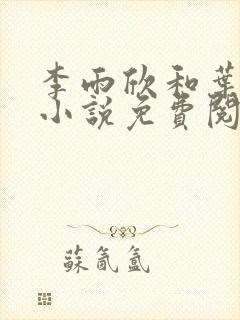 李雨欣和葉
小說免費閱
蘇氤氳